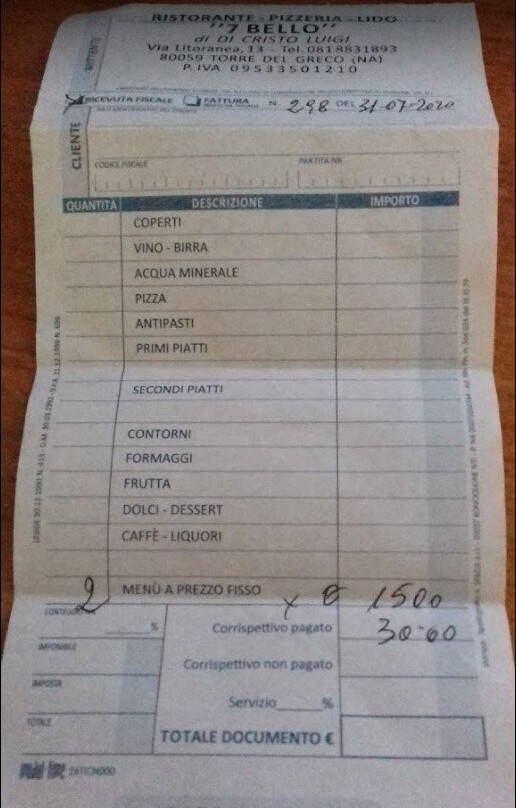 RISTORANTE - PIZZERIA - LIDO
"7 BELLO"
di DI CRISTO LUIGI
Via Litoranea, 13 - Tel. 0818831893
80059 TORRE DEL GRECO (NA)
P. IVA 09533501210
MITTENTE
X RICEVUTA FISCALE FATTURA N. 298 DEL 31-07-2020
CLIENTE
CODICE FISCALE PARTITA IVA
QUANTITÀ DESCRIZIONE IMPORTO
COPERTI
VINO - BIRRA
ACQUA MINERALE
PIZZA
ANTIPASTI
PRIMI PIATTI
SECONDI PIATTI
CONTORNI
FORMAGGI
FRUTTA
DOLCI - DESSERT
CAFFÈ - LIQUORI
2 MENÙ A PREZZO FISSO x € 1500
% Corrispettivo pagato 30-00
IMPONIBILE
Corrispettivo non pagato
IMPOSTA
Servizio______%
TOTALE
TOTALE DOCUMENTO €